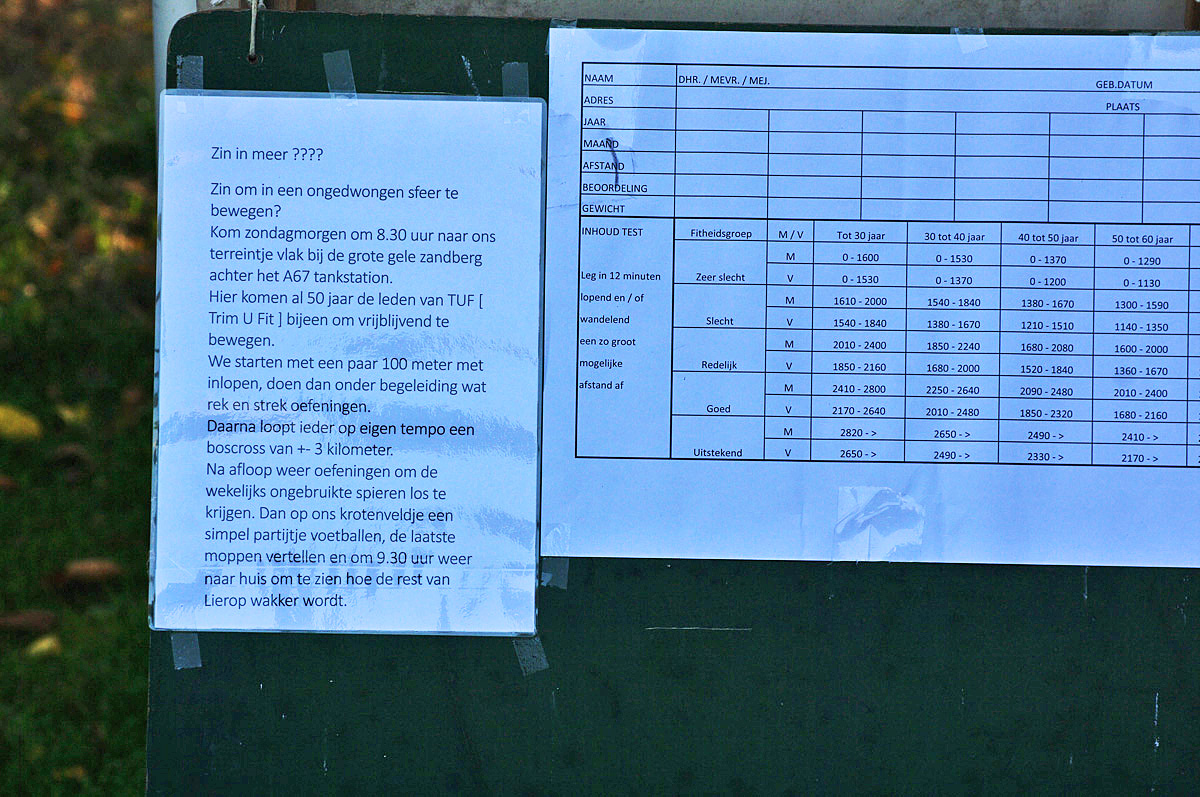 Zin in meer ????
Zin om in een ongedwongen sfeer te
bewegen?
Kom zondagmorgen om 8.30 uur naar ons
terreintje vlak bij de grote gele zandberg
achter het A67 tankstation.
Hier komen al 50 jaar de leden van TUF [
Trim U Fit ] bijeen om vrijblijvend te
bewegen.
We starten met een paar 100 meter met
inlopen, doen dan onder begeleiding wat
rek en strek oefeningen.
Daarna loopt ieder op eigen tempo een
boscross van +- 3 kilometer.
Na afloop weer oefeningen om de
wekelijks ongebruikte spieren los te
krijgen. Dan op ons krotenveldje een
simpel partijtje voetballen, de laatste
moppen vertellen en om 9.30 uur weer
naar huis om te zien hoe de rest van
Lierop wakker wordt.
NAAM DHR. / MEVR. / MEJ. GEB.DATUM
ADRES PLAATS
JAAR
MAAND
AFSTAND
BEOORDELING
GEWICHT
INHOUD TEST Fitheidsgroep M / V Tot 30 jaar 30 tot 40 jaar 40 tot 50 jaar 50 tot 60 jaar
M 0 - 1600 0 - 1530 0 - 1370 0 - 1290
Leg in 12 minuten Zeer slecht V 0 - 1530 0 - 1370 0 - 1200 0 - 1130
lopend en / of M 1610 - 2000 1540 - 1840 1380 - 1670 1300 - 1590
wandelend Slecht V 1540 - 1840 1380 - 1670 1210 - 1510 1140 - 1350
een zo groot M 2010 - 2400 1850 - 2240 1680 - 2080 1600 - 2000
mogelijke Redelijk V 1850 - 2160 1680 - 2000 1520 - 1840 1360 - 1670
afstand af M 2410 - 2800 2250 - 2640 2090 - 2480 2010 - 2400
Goed V 2170 - 2640 2010 - 2480 1850 - 2320 1680 - 2160
M 2820 - > 2650 - > 2490 - > 2410 - >
Uitstekend V 2650 - > 2490 - > 2330 - > 2170 - >